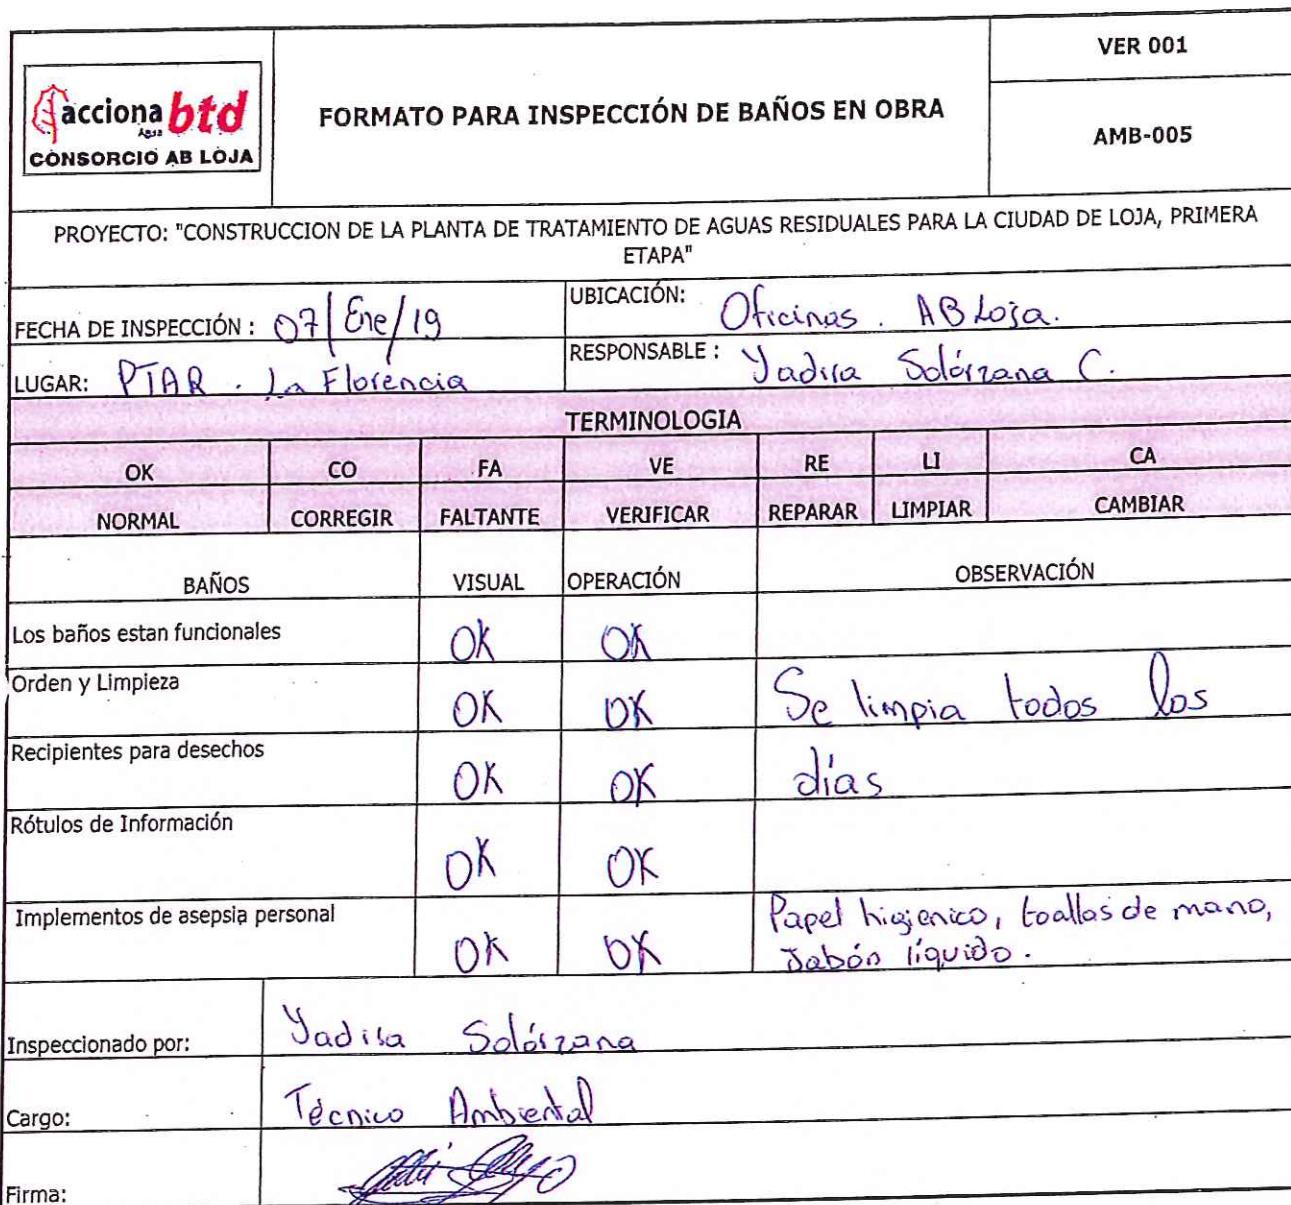 acciona btd
Agua
CONSORCIO AB LOJA
FORMATO PARA INSPECCIÓN DE BAÑOS EN OBRA
VER 001
AMB-005
PROYECTO: "CONSTRUCCION DE LA PLANTA DE TRATAMIENTO DE AGUAS RESIDUALES PARA LA CIUDAD DE LOJA, PRIMERA
ETAPA"
FECHA DE INSPECCIÓN : 07/Ene/19
UBICACIÓN: Oficinas. AB Loja.
LUGAR: PTAR. La Florencia
RESPONSABLE : Yadira Solórzana C.
TERMINOLOGIA
OK CO FA VE RE LI CA
NORMAL CORREGIR FALTANTE VERIFICAR REPARAR LIMPIAR CAMBIAR
BAÑOS VISUAL OPERACIÓN OBSERVACIÓN
Los baños estan funcionales OK OK
Orden y Limpieza OK OK Se limpia todos los
Recipientes para desechos OK OK días
Rótulos de Información OK OK
Implementos de asepsia personal OK OK Papel higienico, toallas de mano,
Jabón líquido.
Inspeccionado por: Yadira Solórzana
Cargo: Técnico Ambiental
Firma: